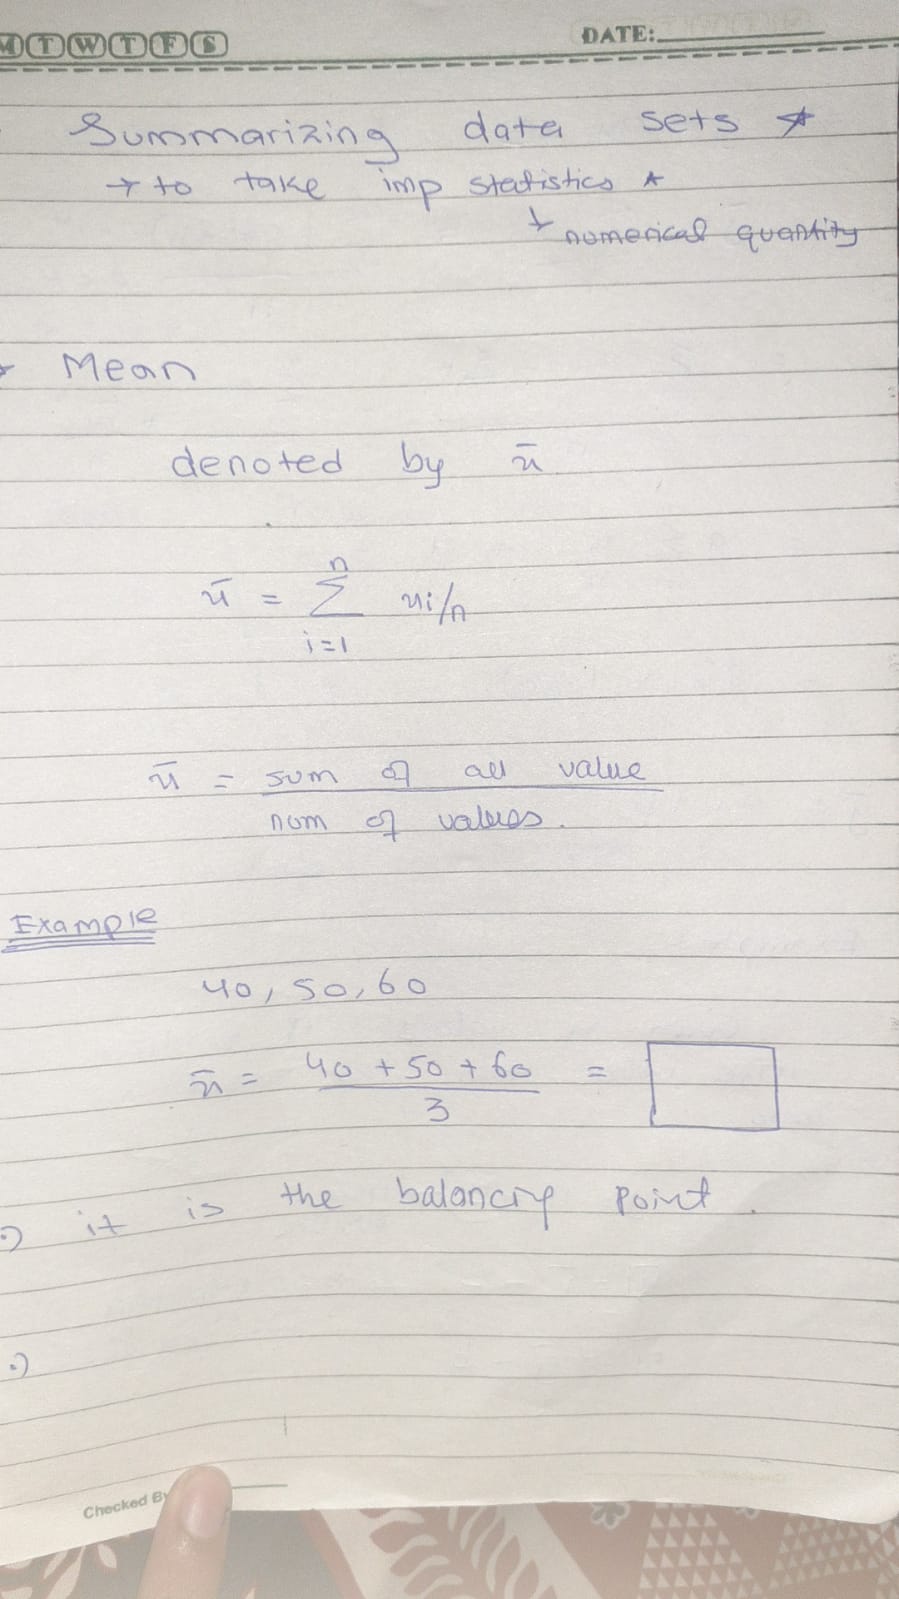 M T W T F S DATE:
Summarizing data sets *
→ to take imp statistics *
↓ numerical quantity
Mean
denoted by x̄
n
x̄ = Σ xi/n
i=1
x̄ = sum of all value
num of values.
Example
40, 50, 60
x̄ = 40 + 50 + 60 =
3
•) it is the balancing point.
•)
Checked By